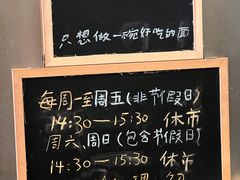 只想做一碗好吃的面
每周一至周五(非节假日)
14:30—15:30 休市
周六、周日(包含节假日)
14:30—15:30 休市